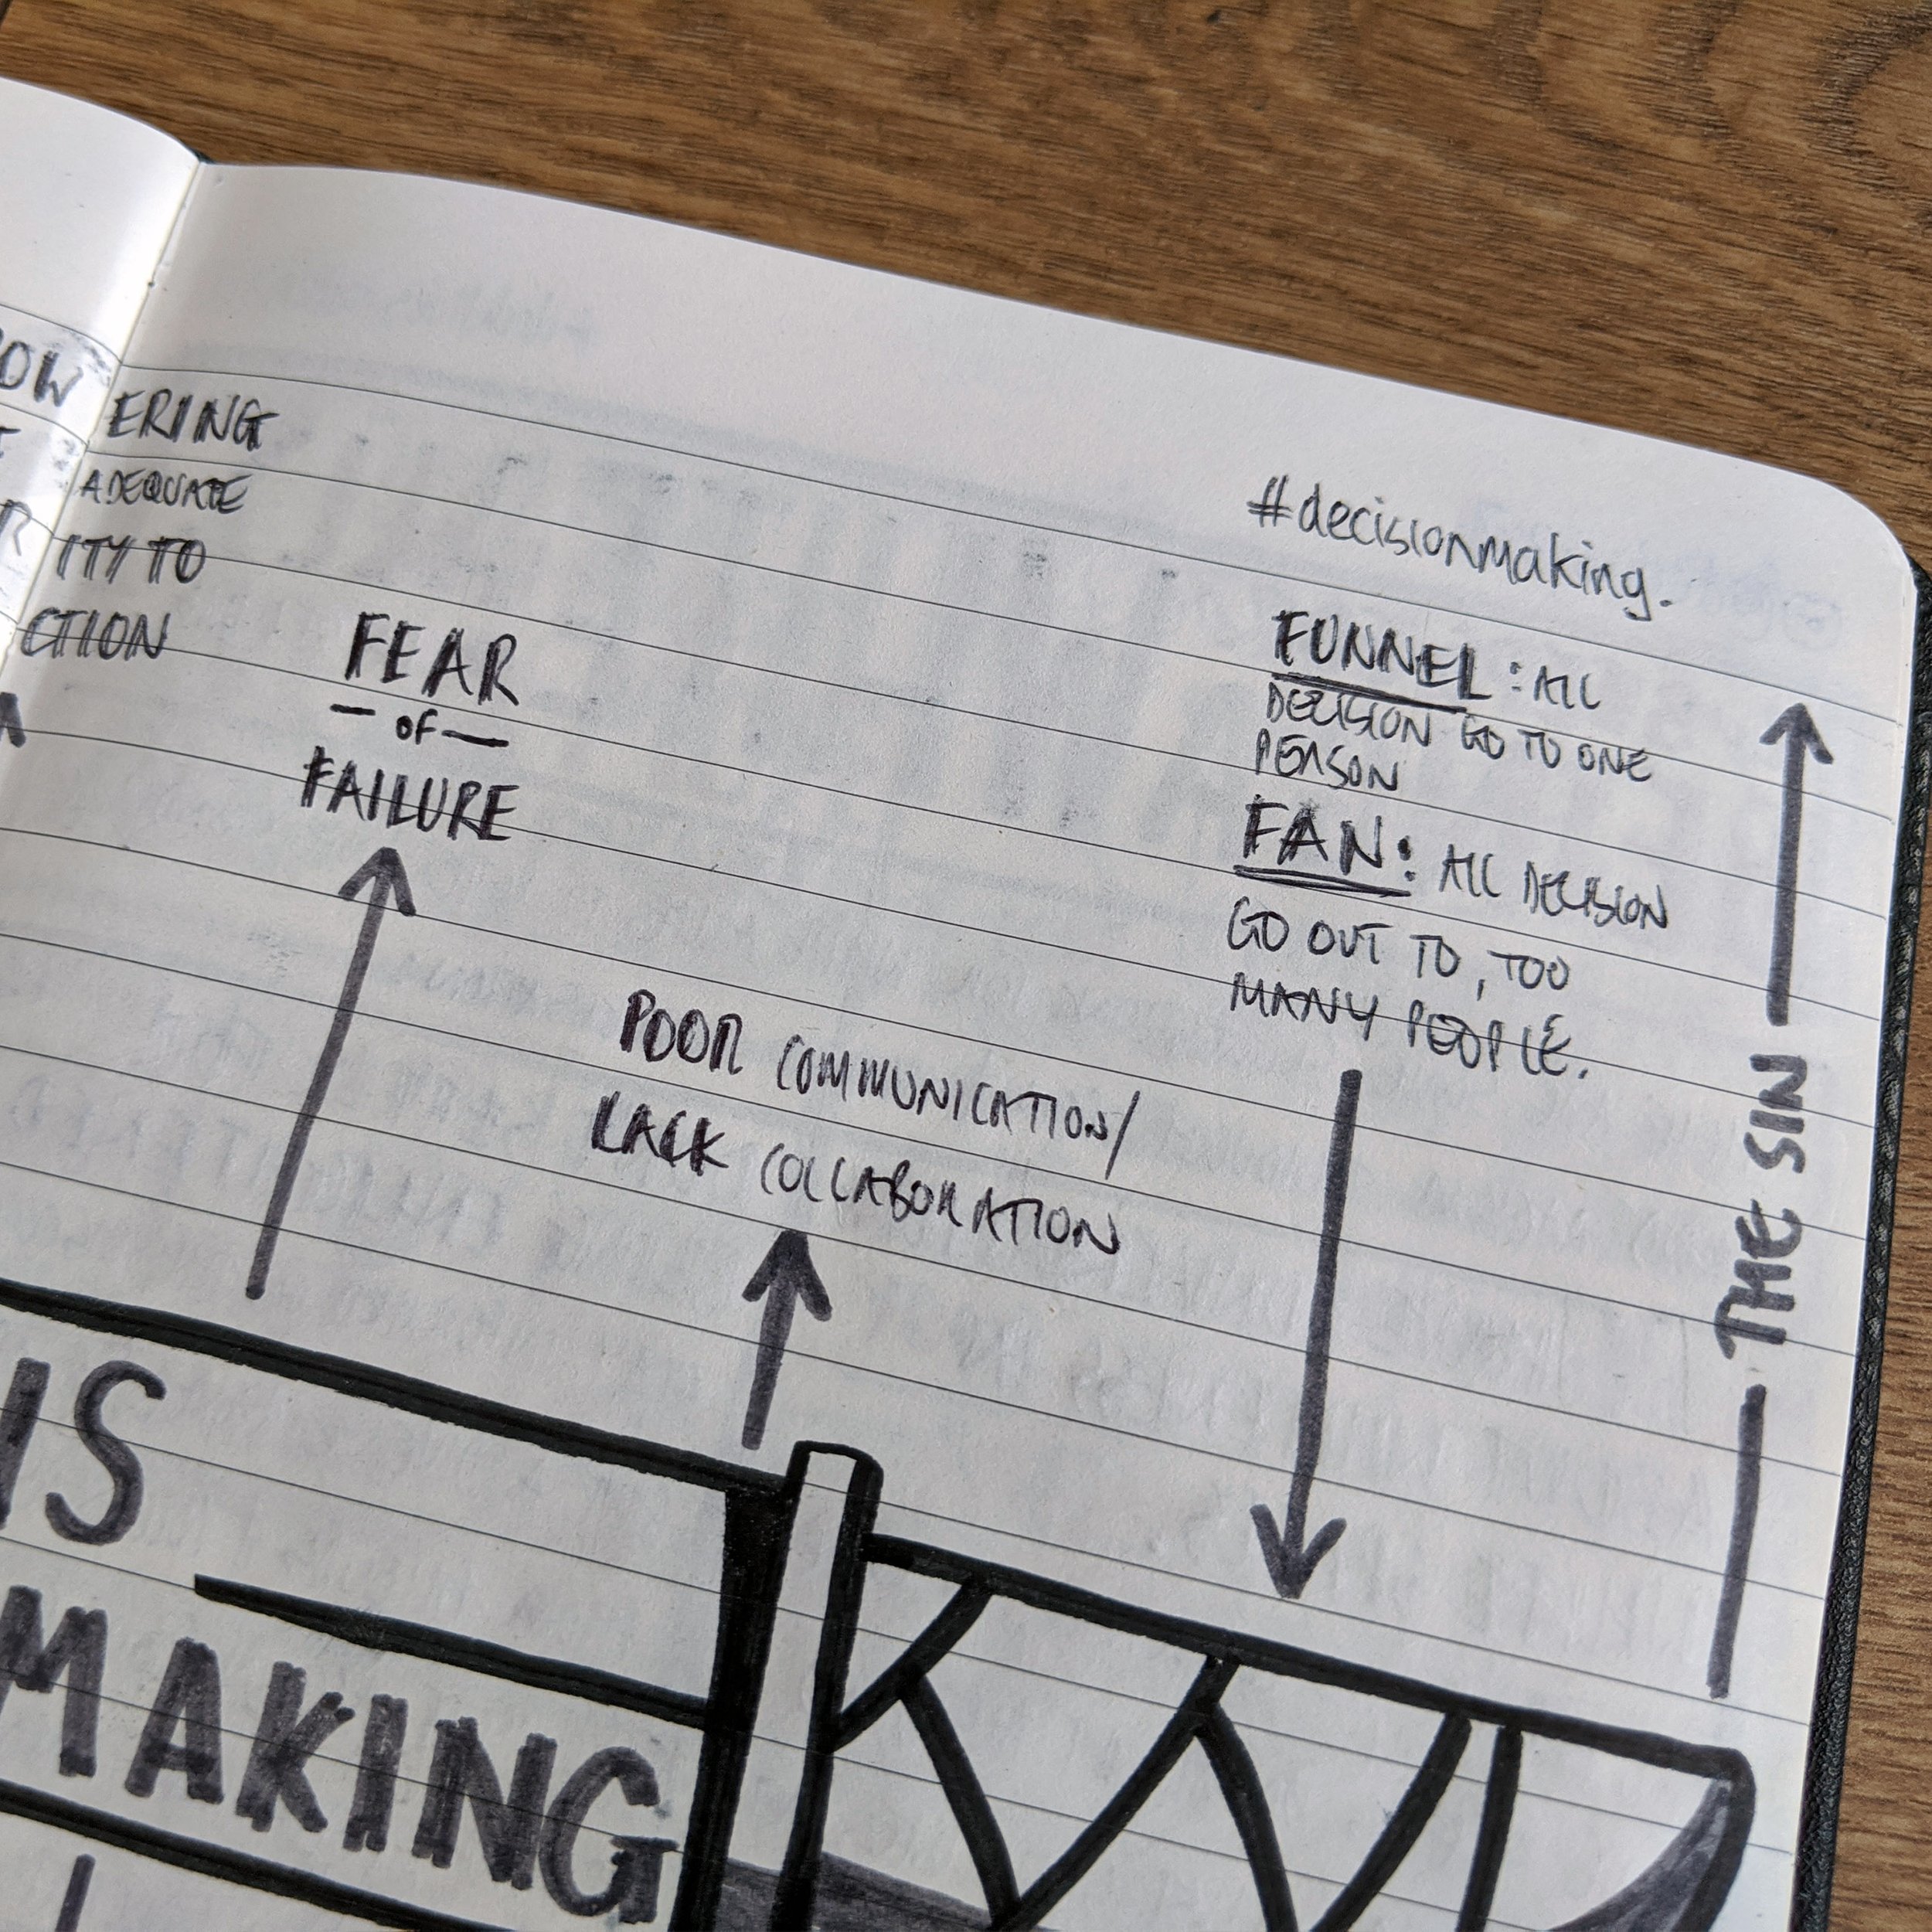 OW
ERING
ADEQUATE
R
ITY TO
CTION
#decisionmaking.
FUNNEL: ALL
DECISION GO TO ONE
PERSON
FAN: ALL DECISION
GO OUT TO, TOO
MANY PEOPLE.
FEAR
— OF —
FAILURE
POOR COMMUNICATION/
LACK COLLABORATION
THE SIN
IS
MAKING